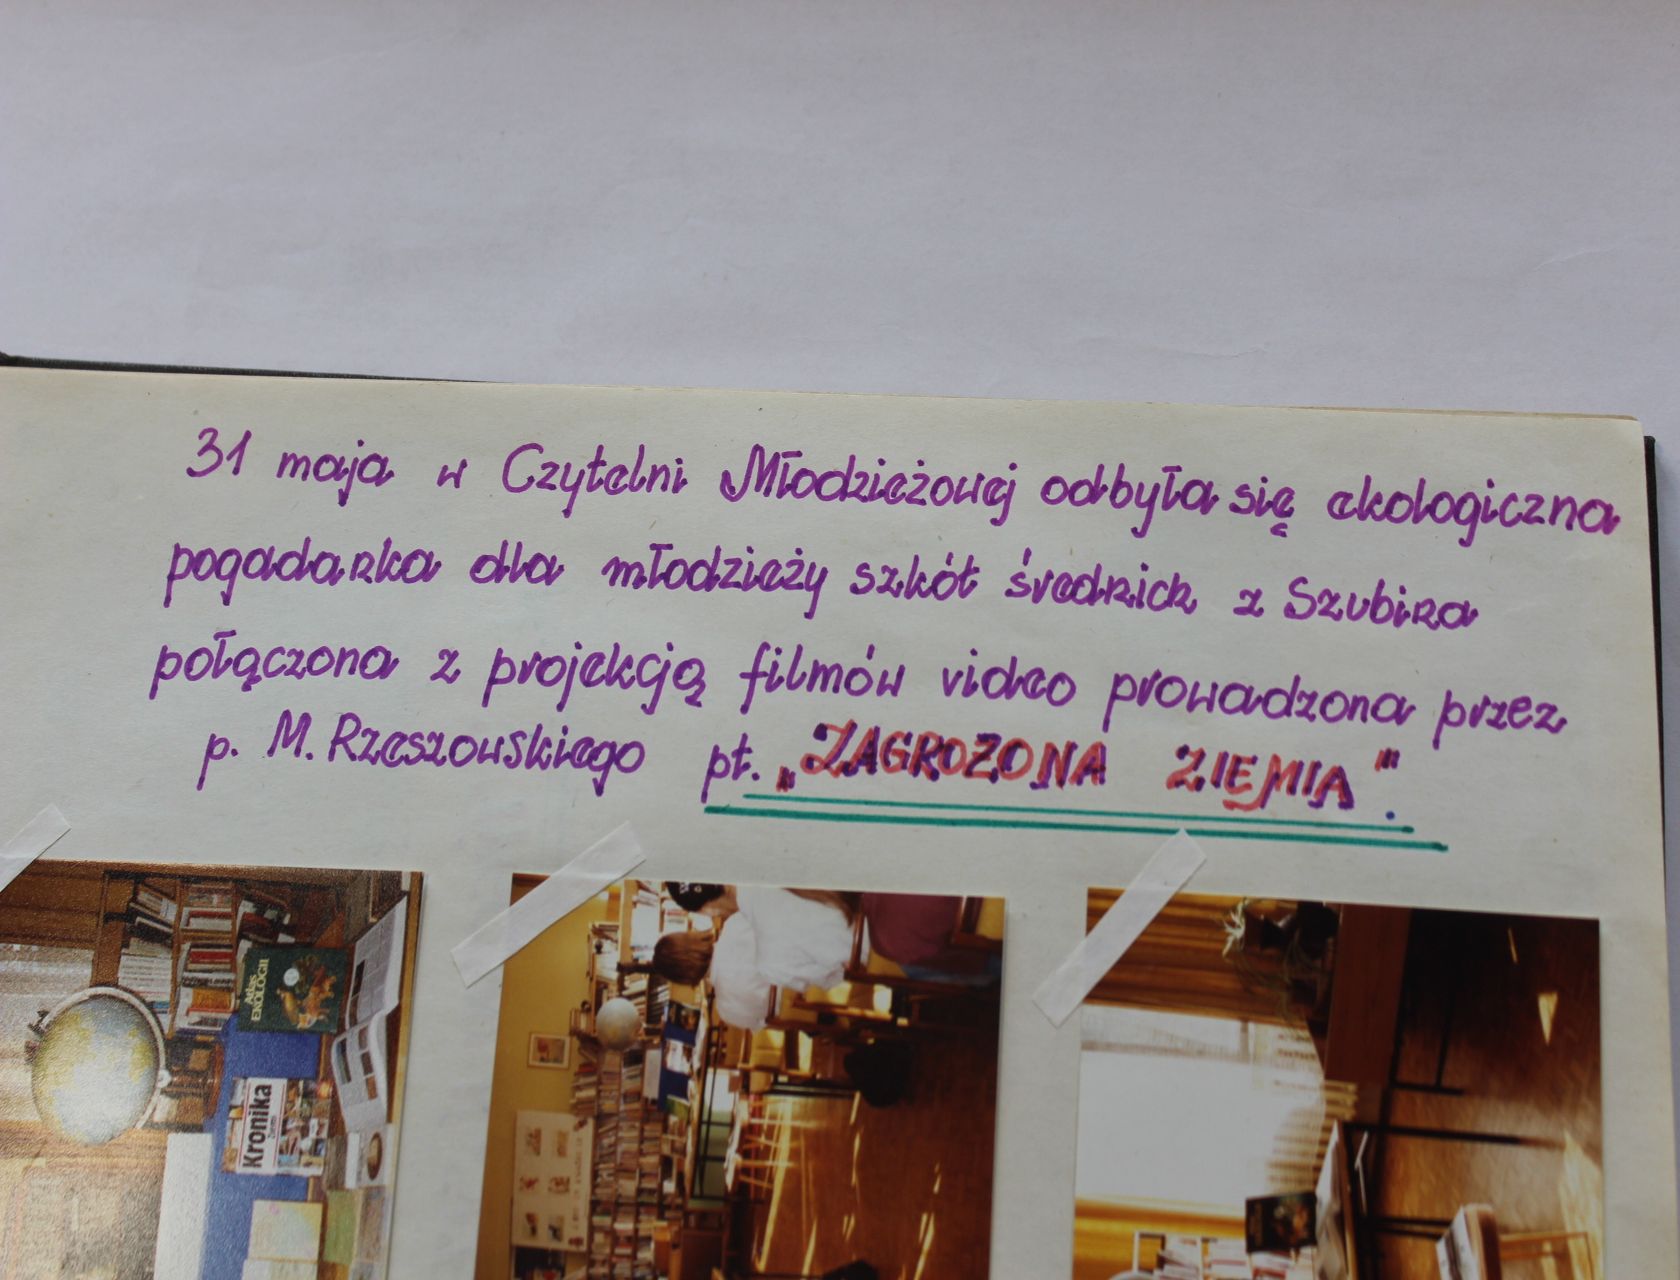 31 maja w Czytelni Młodzieżowej odbyła się ekologiczna
pogadanka dla młodzieży szkół średnich z Szubina
połączona z projekcją filmów video prowadzona przez
p. M. Rzeszowskiego pt. „ZAGROŻONA ZIEMIA".
Atlas
EKOLOGII
Kronika